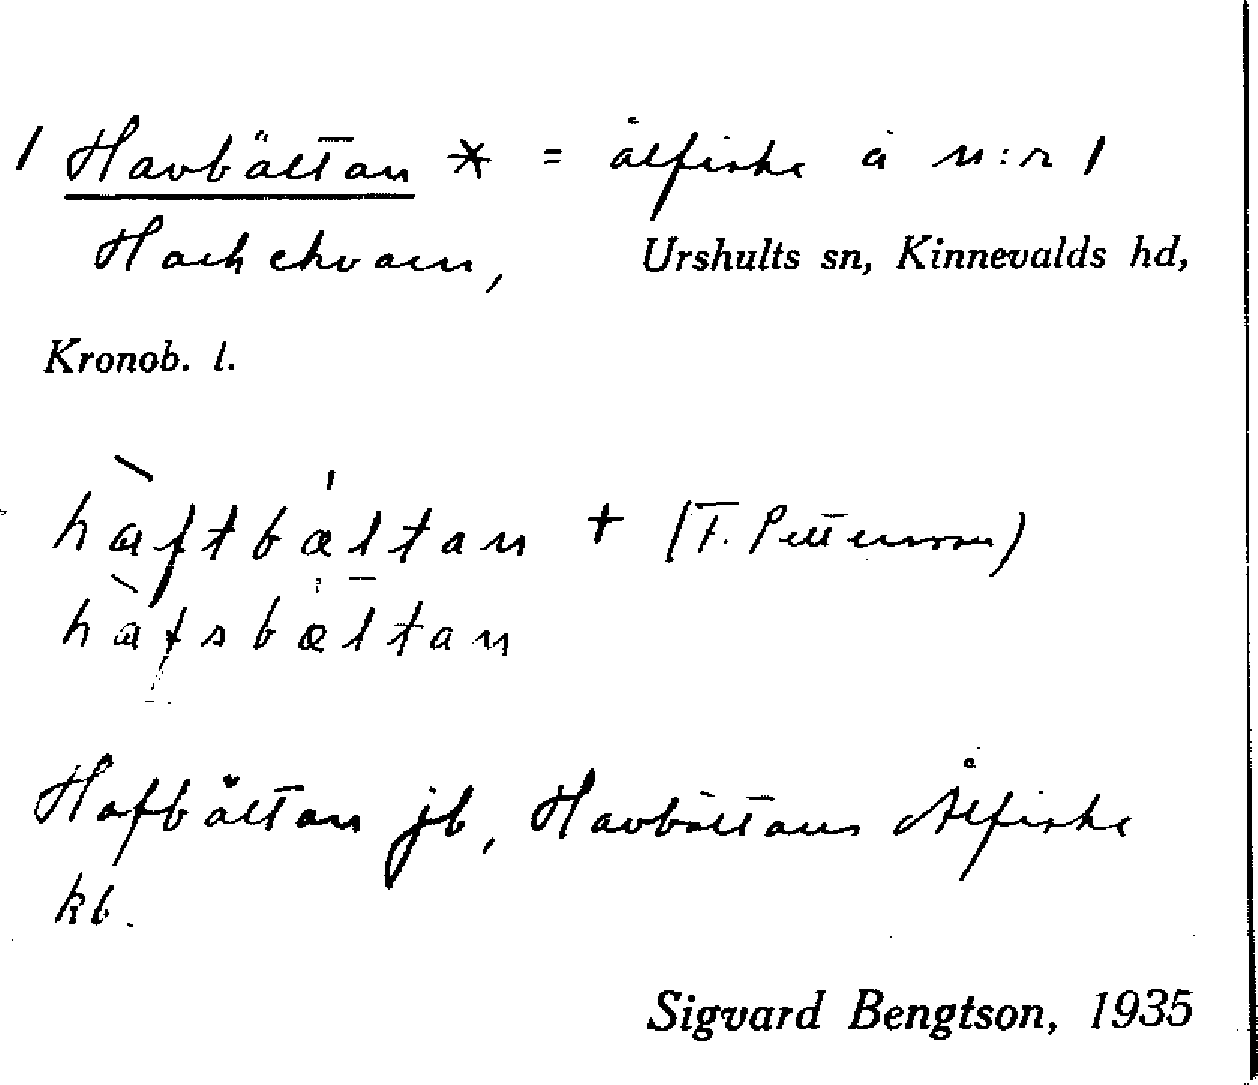 1 Havbältan * = ålfiske å n:r 1
Hackekvarn, Urshults sn, Kinnevalds hd,
Kronob. l.
hàftbæ'ltan + (F. Pettersson)
hàfsbæltan
Hafbältan jb, Havbältans Ålfiske
kb.
Sigvard Bengtson, 1935